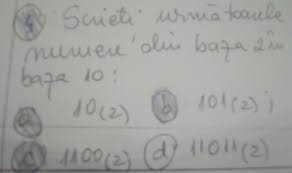 4 Scrieți următoarele
numere din baza 2 în
baza 10:
a 10(2) b 101(2);
c 1100(2) d 11011(2)